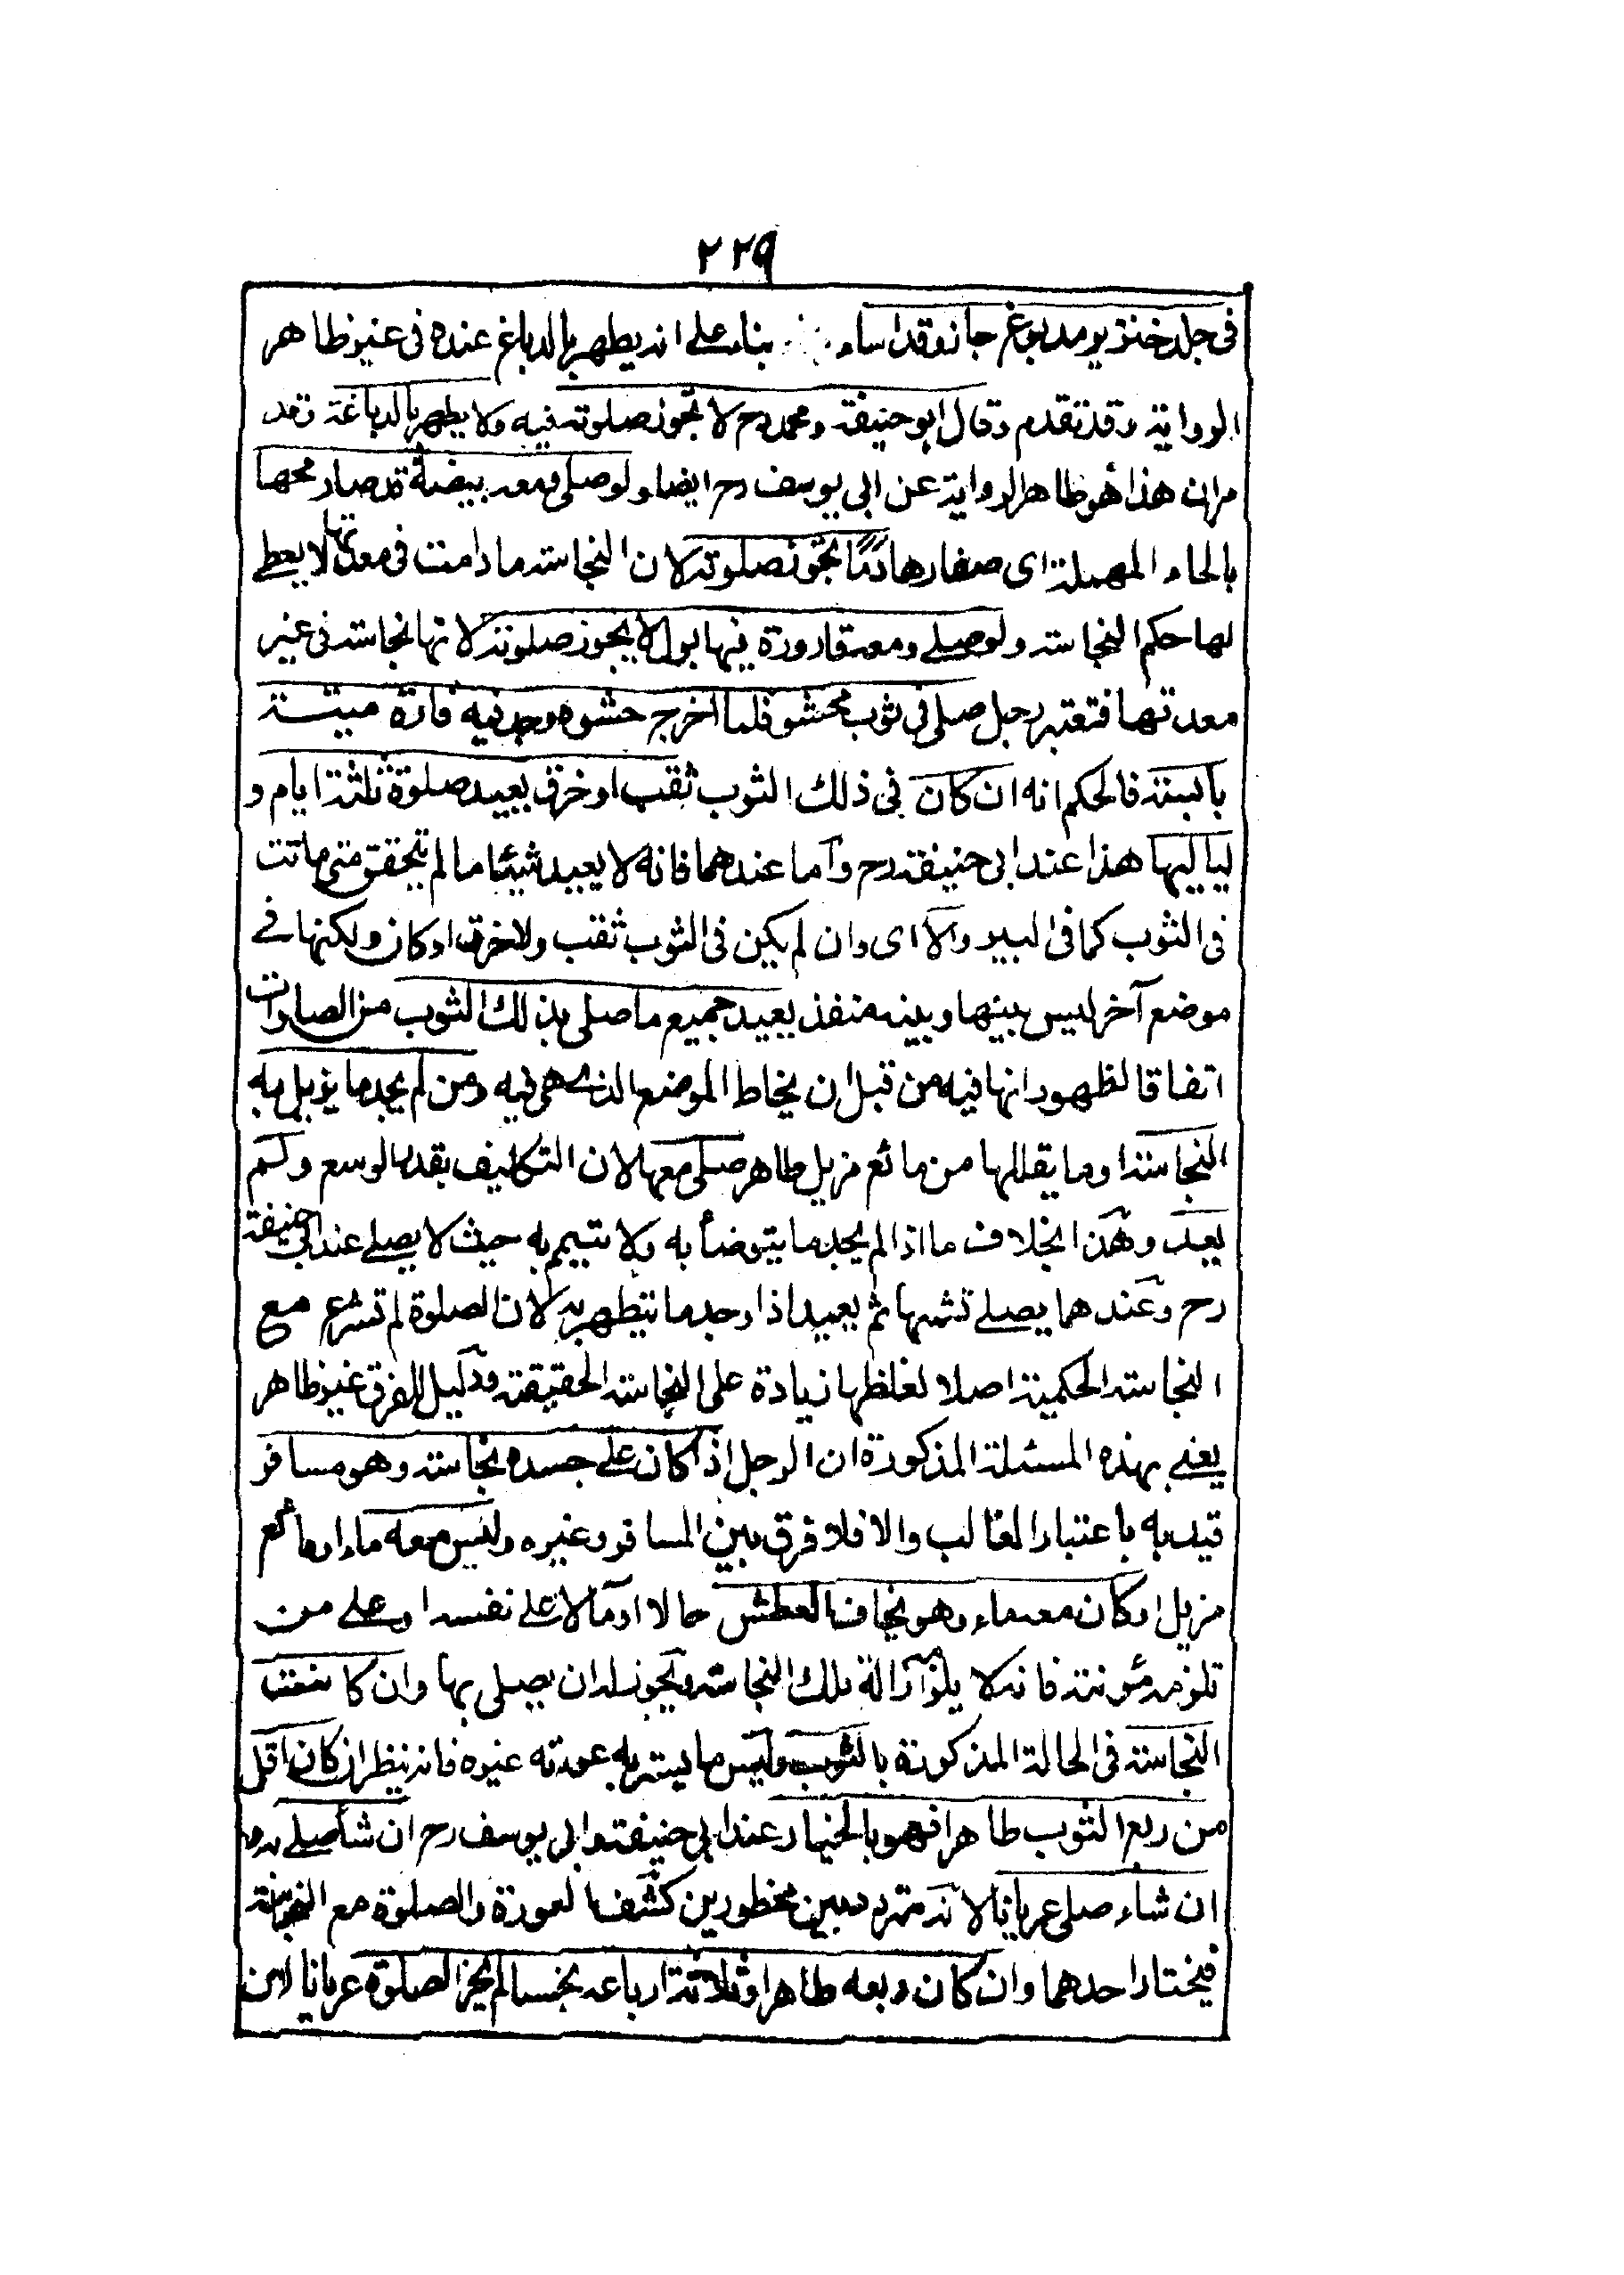 ٢٢٩
في جلد خنزير مدبوغ جاز وقد اساء بناء على انه يطهر بالدباغ عنده في غير ظاهر
الرواية وقد تقدم وقال ابو حنيفة ومحمد رح لا تجوز صلوته فيه ولا يطهر بالدباغة وقد
مر ان هذا هو ظاهر الرواية عن ابي يوسف رح ايضا ولو صلى ومعه بيضة قد صار محها
بالحاء المهملة اى صفارها دما تجوز صلوته لان النجاسة ما دامت في معدنها لا يعطى
لها حكم النجاسة ولو صلى ومعه قارورة فيها بول لا يجوز صلوته لانها نجاسة في غير
معدنها فتعتبر رجل صلى في ثوب محشو فلما اخرج حشوه وجد فيه فارة ميتة
يابسة فالحكم انه ان كان في ذلك الثوب ثقب او خرق يعيد صلوة ثلثة ايام و
لياليها هذا عند ابي حنيفة رح وأما عندهما فانه لا يعيد شيئا ما لم يتحقق متى ماتت
في الثوب كما في البير والا اى وان لم يكن في الثوب ثقب ولا خرق او كان ولكنها في
موضع آخر ليس بينها وبينه منفذ يعيد جميع ما صلى بذلك الثوب من الصلوات
اتفاقا لظهور انها فيه من قبل ان يخاط الموضع الذي هي فيه ومن لم يجد ما يزيل به
النجاسة او ما يقللها من مائع مزيل طاهر صلى معها لان التكليف بقدر الوسع ولم
يعد وهذا بخلاف ما اذا لم يجد ما يتوضأ به ولا يتيمم به حيث لا يصلى عند ابي حنيفة
رح وعندهما يصلى تشبها ثم يعيد اذا وجد ما يتطهر به لان الصلوة لم تشرع مع
النجاسة الحكمية اصلا لغلظها زيادة على النجاسة الحقيقة ودليل الفرق غير ظاهر
يعنى بهذه المسئلة المذكورة ان الرجل اذا كان على جسده نجاسة وهو مسافر
قيد به باعتبار الغالب والا فلا فرق بين المسافر وغيره وليس معه ماء او مائع
مزيل او كان معه ماء وهو يخاف العطش حالا او مآلا على نفسه او على من
تلزمه مؤنته فانه لا يلزم ازالة تلك النجاسة ويجوز له ان يصلى بها وان كانت
النجاسة في الحالة المذكورة بالثوب وليس ما يستر به عورته غيره فانه ينظر ان كان اقل
من ربع الثوب طاهرا فهو بالخيار عند ابي حنيفة وابي يوسف رح ان شاء صلى به و
ان شاء صلى عريانا لانه متردد بين محظورين كشف العورة والصلوة مع النجاسة
فيختار احدهما وان كان ربعه طاهرا وثلاثة ارباعه نجسا لم يجز الصلوة عريانا لان